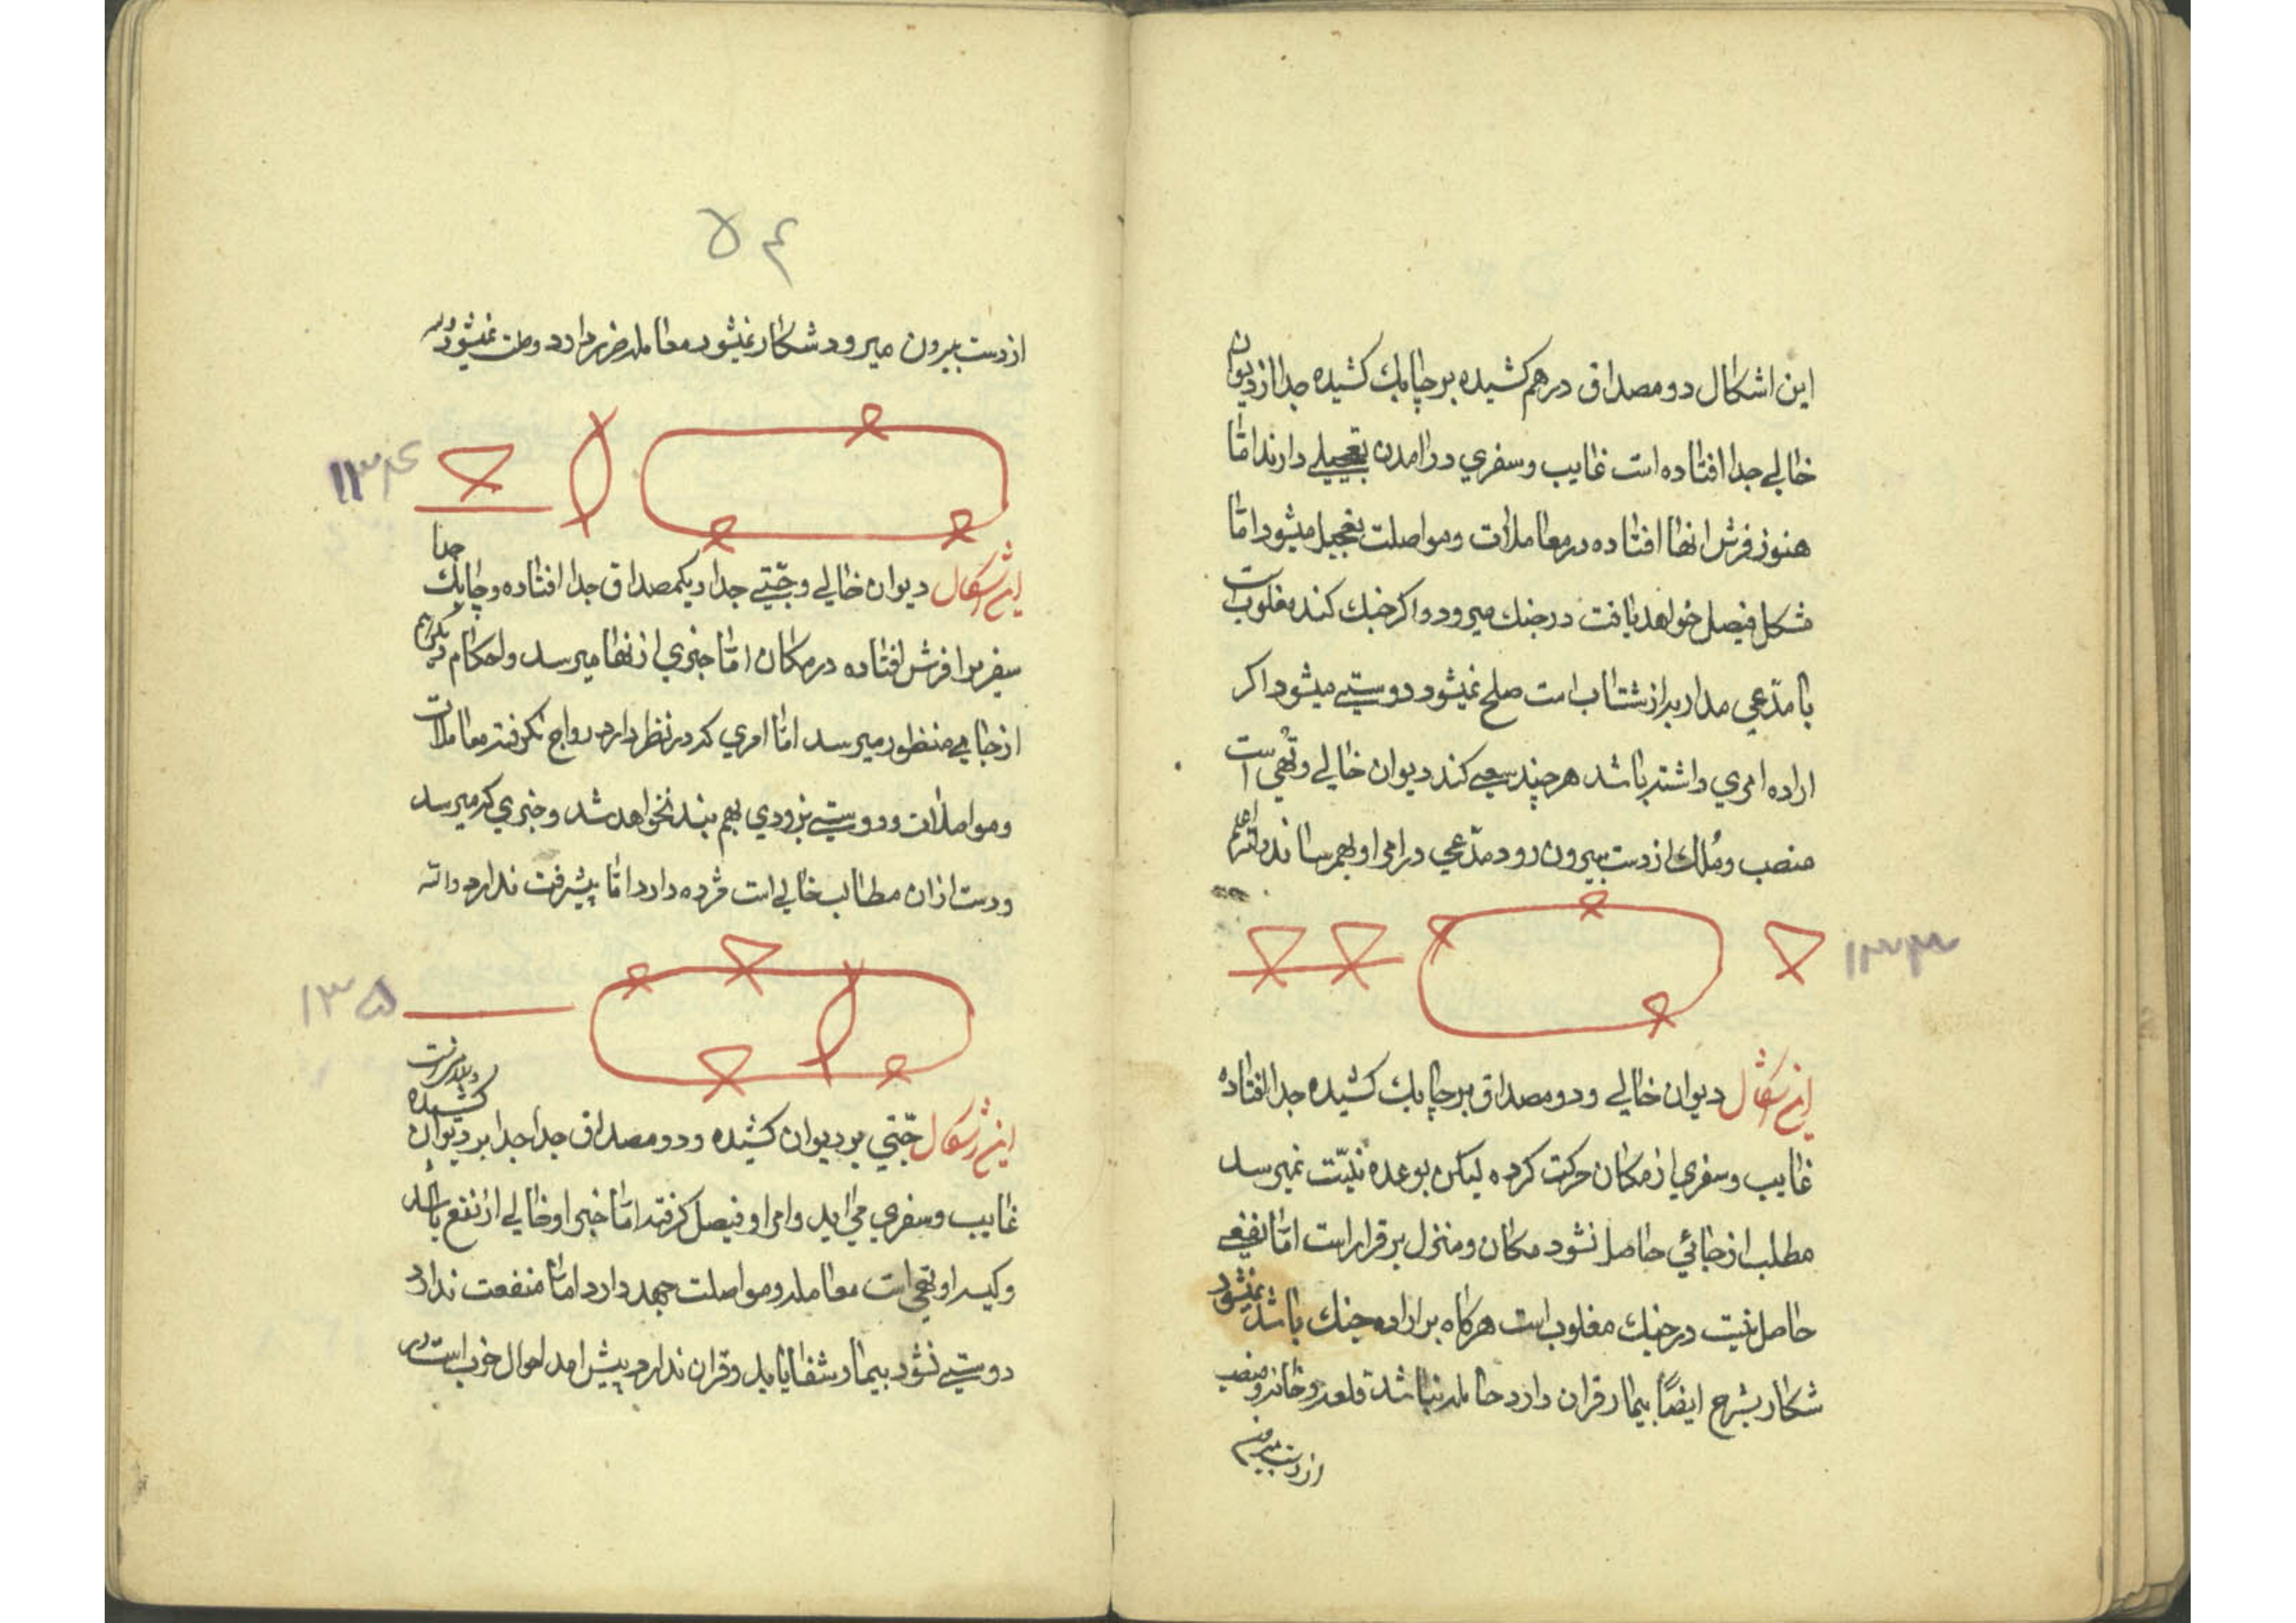 این اشکال دو مصداق درهم کشیده بر چابک کشیده جدا از دیوان
خالی جدا افتاده است غایب و سفری در آمدن تعجیلی دارند اما
هنوز فرش انها افتاده در معاملات و مواصلت تعجیل میشود اما
مشکل فیصل خواهد یافت در جنک میرود و اکر جنک کند مغلوب است
با مدعی مدار بر از شتاب است صلح نمیشود دوستی میشود اکر
اراده امری داشته باشد هر چند سعی کند دیوان خالی و تهی است
منصب و ملک از دست بیرون رود مدعی در امر او بهم رساند والله اعلم
۱۳۳
این اشکال دیوان خالی و دو مصداق بر چابک کشیده جدا افتاده
غایب و سفری از مکان حرکت کرده لیکن بوعده نیت نمیرسد
مطلب از جائی حاصل نشود مکان و منزل بر قرار است اما نفعی
حاصل نیست در جنک مغلوب است هرکاه بر اراده جنک باشد نمیشود
شکار بشرح ایضاً بیمار قران دارد حامله نباشد قلعه و خانه و منصب
از دست
۵۴
از دست بیرون میرود شکار نمیشود معامله ضرر دارد وصلت نمیشود
۱۳۴
این اشکال دیوان خالی و جتی جدا و یکمصداق جدا افتاده و چابک جدا
سفر مرا فرش افتاده در مکان اما خبری از انها میرسد و احکام
از جایی منظور میرسد اما امری که در نظر دارد رواج نکرفته معاملات
و مواصلات و دوستی بزودی بهم بند نخواهد شد و خبری که میرسد
و دست ازان مطالب خالی است مژده دارد اما پیشرفت ندارد
۱۳۵
این اشکال جتی بر دیوان کشیده و دو مصداق جدا جدا بر دیوان کشیده
غایب و سفری می اید و امر او فیصل کرفته اما خبر او خالی از نفع باشد
و کیسه او تهی است معامله و مواصلت جهد دارد اما منفعت ندارد
دوستی نشود بیمار شفا یابد و قران ندارد پیش امد احوال خوب است